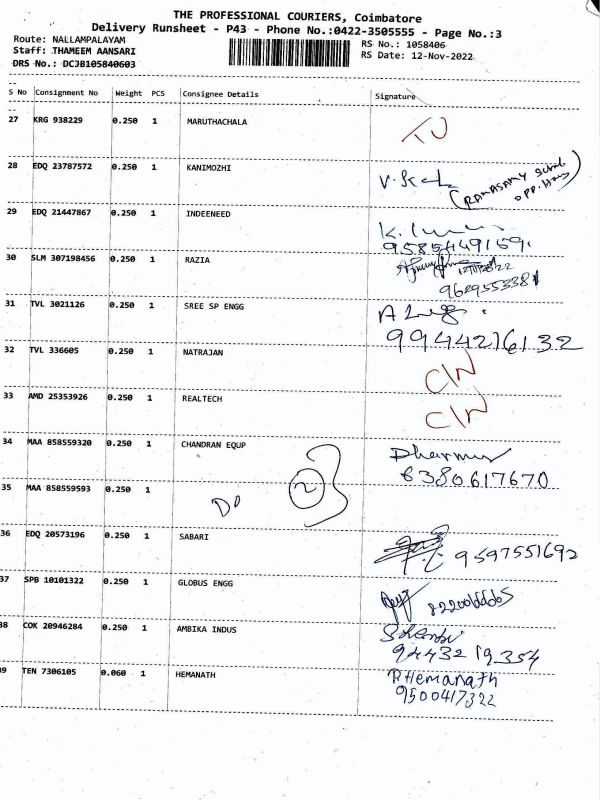 THE PROFESSIONAL COURIERS, Coimbatore
Delivery Runsheet - P43 - Phone No.:0422-3505555 - Page No.:3
Route: NALLAMPALAYAM
RS No.: 1058406
Staff: THAMEEM AANSARI
RS Date: 12-Nov-2022
DRS No.: DCJB105840603
S No Consignment No Weight PCS Consignee Details Signature
27 KRG 938229 0.250 1 MARUTHACHALA
28 EDQ 23787572 0.250 1 KANIMOZHI
(RAMASAMY
OPP.
29 EDQ 21447867 0.250 1 INDEENEED
9585449159.
30 SLM 307198456 0.250 1 RAZIA
31 TVL 3021126 0.250 1 SREE SP ENGG
9944216132
32 TVL 336605 0.250 1 NATRAJAN
C/N
33 AMD 25353926 0.250 1 REALTECH
C/N
34 MAA 858559320 0.250 1 CHANDRAN EQUP
6380617670
35 MAA 858559593 0.250 1
Do
2
36 EDQ 20573196 0.250 1 SABARI
9597551692
37 SPB 10101322 0.250 1 GLOBUS ENGG
38 COK 20946284 0.250 1 AMBIKA INDUS
9443219354
39 TEN 7306105 0.060 1 HEMANATH
P.Hemanath
9500417322